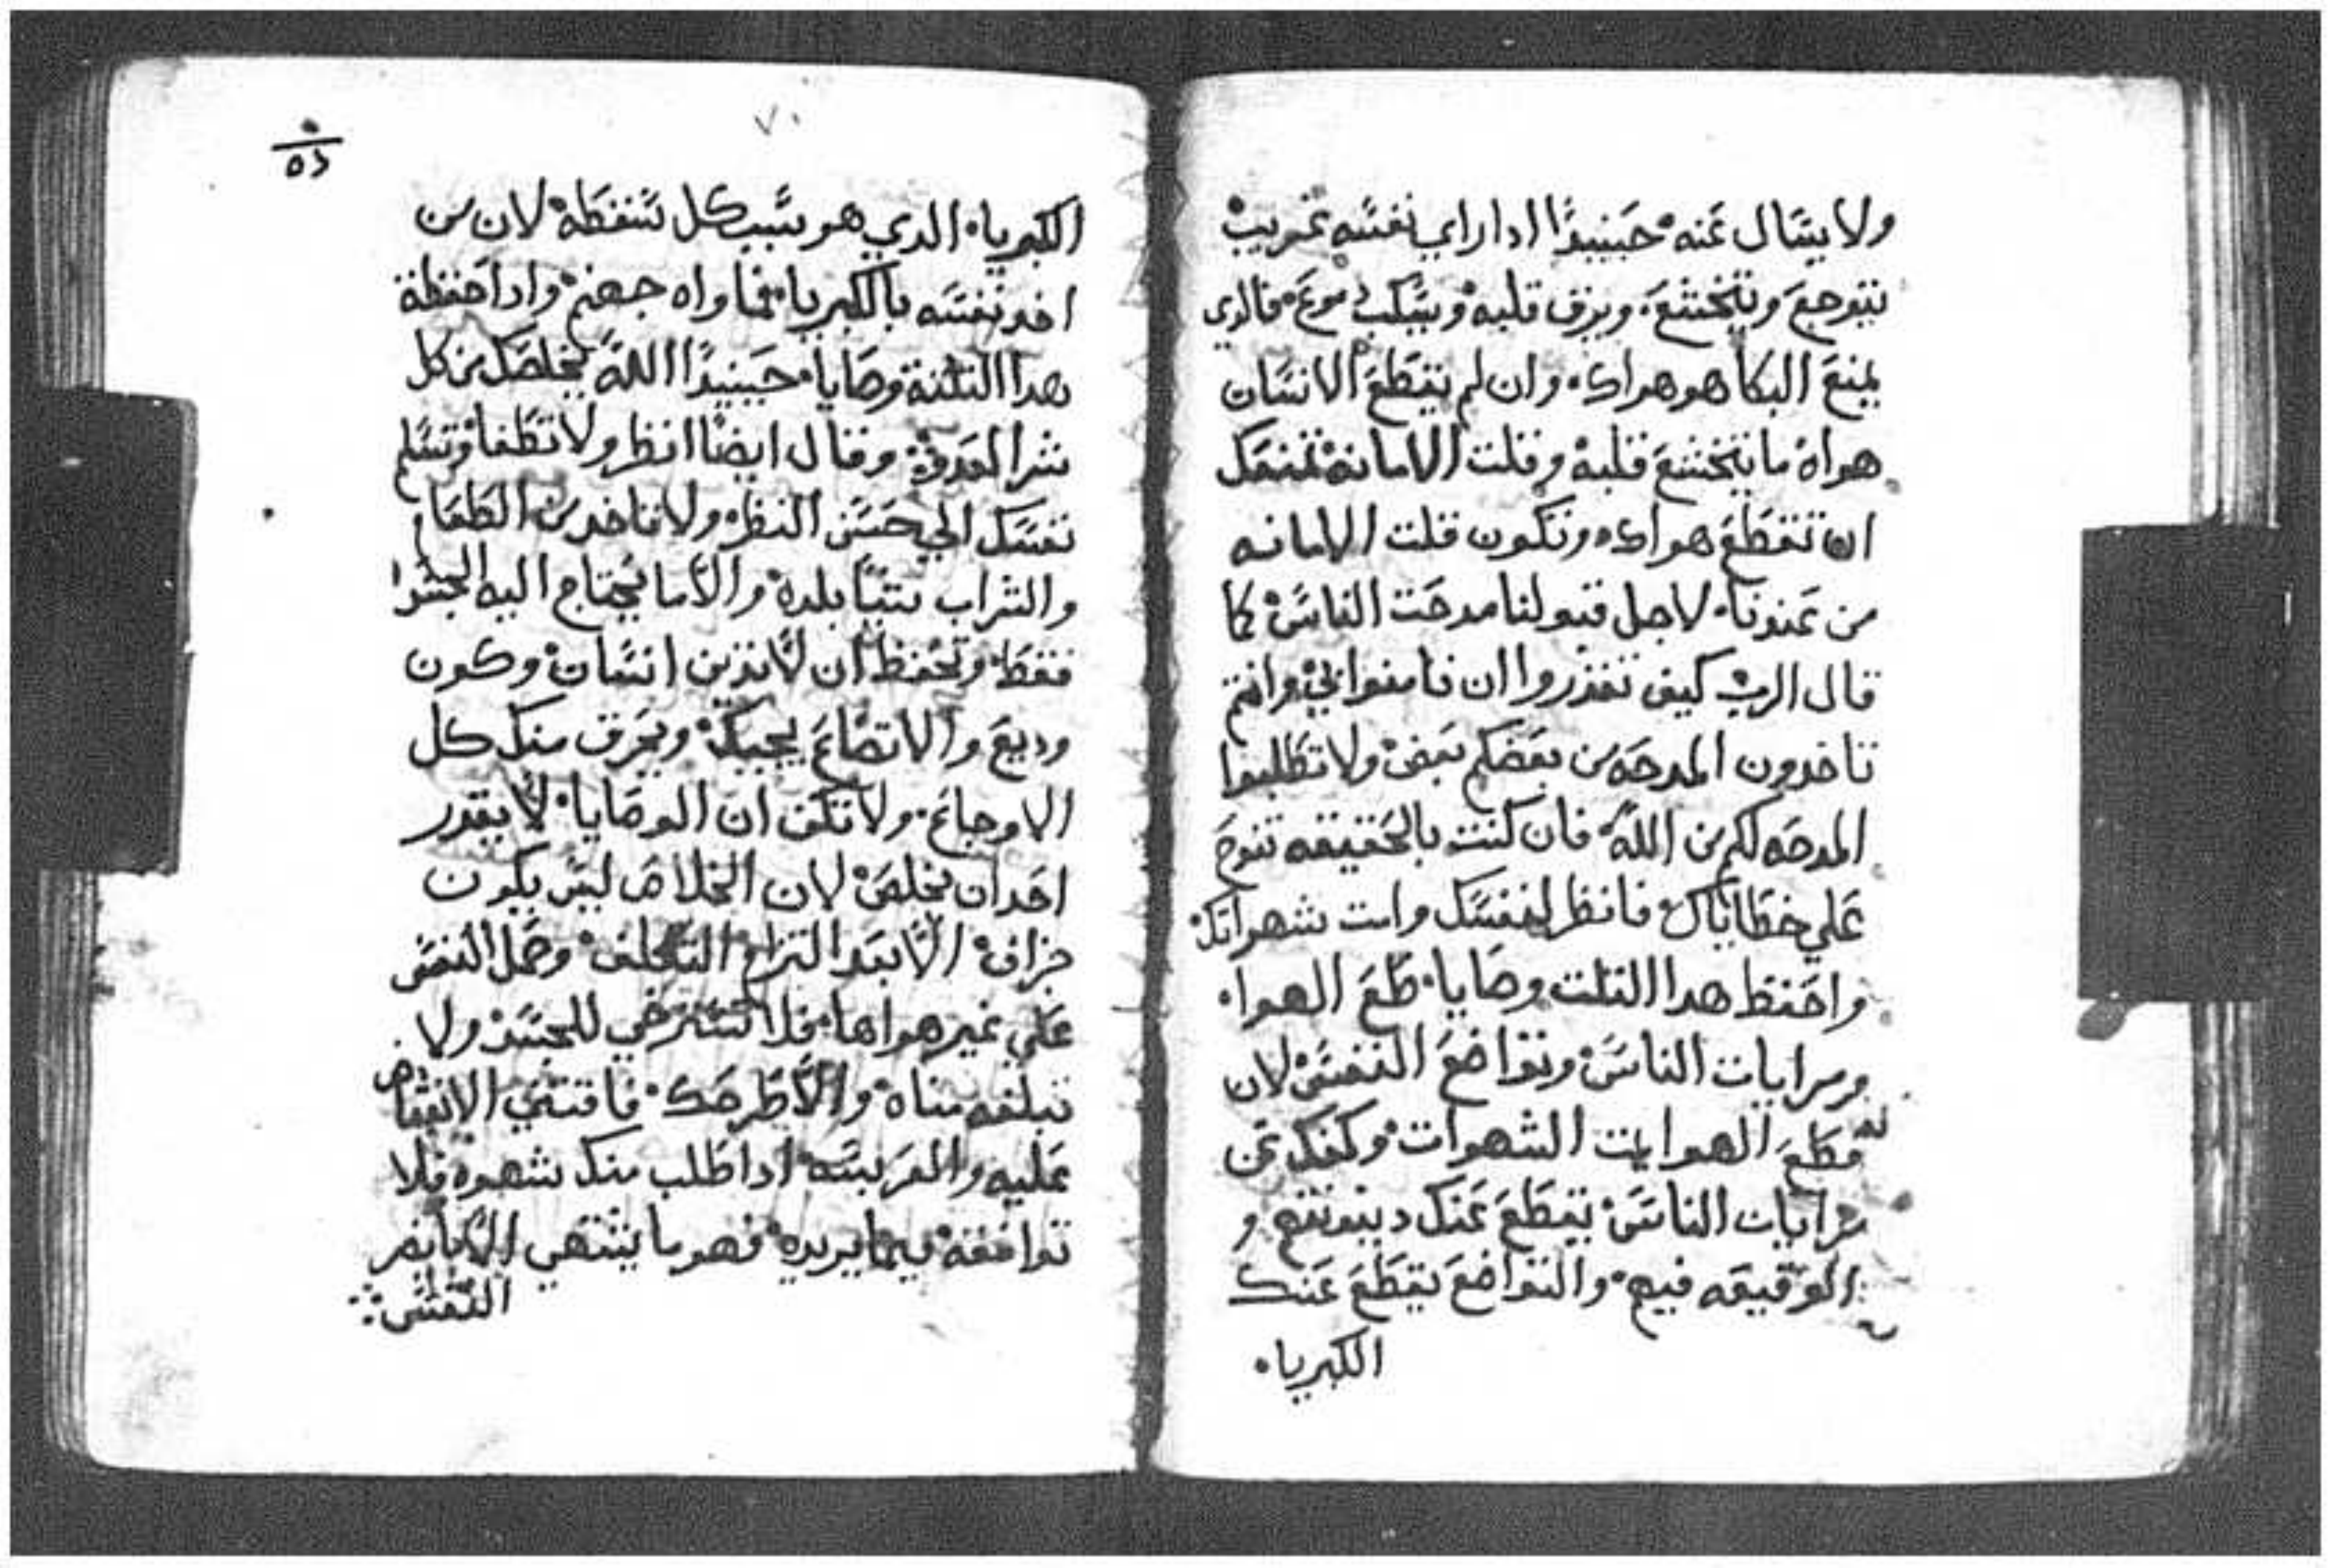 ولا يسال عنه حينيدًا ادا راي نفسه غريب
يتوجع ويتخشع ويرق قلبه ويسكب دموع فالدي
يمنع البكا هو هواك وان لم يقطع الانسان
هواه ما يتخشع قلبه وقلت الامانه تمنعك
ان تقطع هواك وتكون قلت الامانه
من عندنا لاجل قبولنا مدحت الناس كما
قال الرب كيف تقدروا ان تامنوا بي وانتم
تاخدون المدحه من بعضكم بعض ولا تطلبوا
المدحه لكم من الله فان كنت بالحقيقه تنوح
علي خطاياك فانظر لنفسك وامت شهواتك
واحفظ هدا التلت وصايا قطع الهوا
ومرايات الناس وتواضع النفس لان
قطع الهوا يمت الشهوات وكفك عن
مرايات الناس يقطع عنك دينونتهم و
الوقيعه فيهم والتواضع يقطع عنك
الكبرياء
٧٠
الكبرياء الدي هو سبب كل سقطه لان من
اخد نفسه بالكبريا فماواه جهنم وادا حفظة
هدا التلتة وصايا حينيدًا الله يخلصك من كل
شر العدو وقال ايضًا انظر ولا تطغا وتسلم
نفسك الي حسن النظر ولا تاخد من الطعام
والشراب شيًا بلده والا ما يحتاج اليه الجسد
فقط وتحفظ ان لا تدين انسان وكون
وديع والاتضاع يجيك ويحرق منك كل
الاوجاع ولا تكف ان الوصايا لا يقدر
احد ان يخلص لان الخلاص ليس يكون
جزاف الا بعد التزام التكلف وحمل النفس
علي غير هواها فلا تسترخي للجسد ولا
تبلغه مناه والا طرحك فاقتني الانتقاض
عليه والغربسه ادا طلب منك شهوه فلا
توافقه فيما يريده فهو ما يشتهي الا ما يضر
النفس